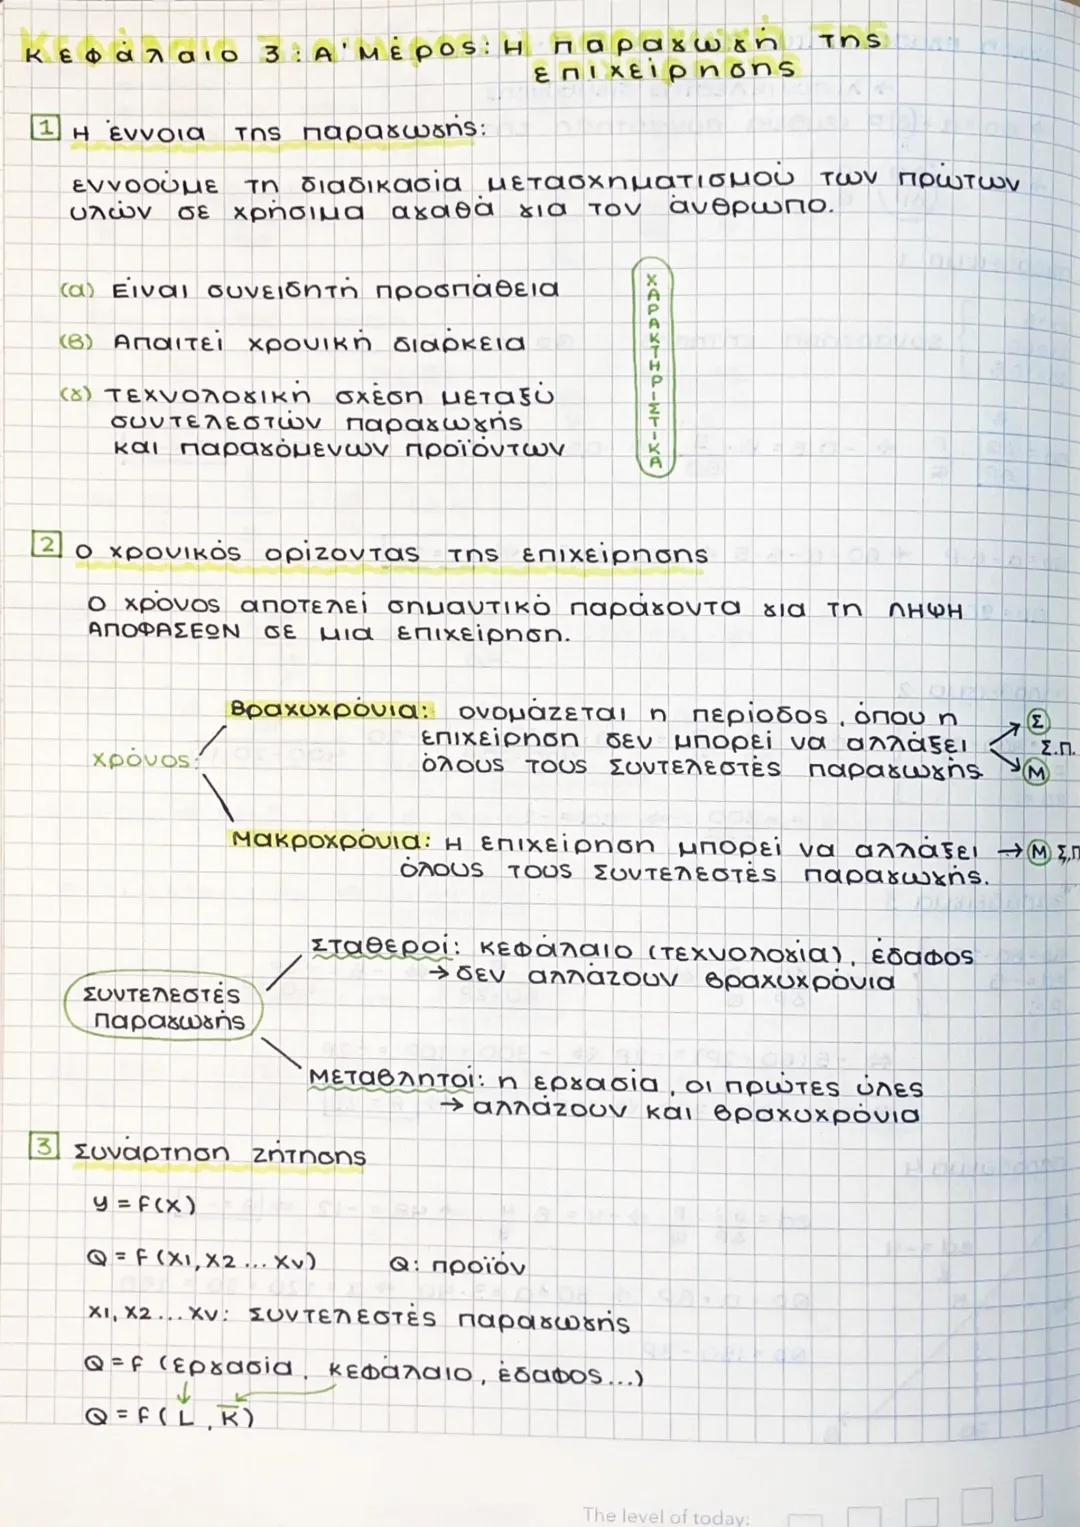 Κεφάλαιο 3: Α' Μέρος: Η παραγωγή της
επιχείρησης
1 Η έννοια της παραγωγής:
εννοούμε τη διαδικασία μετασχηματισμού των πρώτων
υλών σε χρήσιμα αγαθά για τον άνθρωπο.
(α) Είναι συνειδητή προσπάθεια
(β) Απαιτεί χρονική διάρκεια
(γ) Τεχνολογική σχέση μεταξύ
συντελεστών παραγωγής
και παραγόμενων προϊόντων
ΧΑΡΑΚΤΗΡΙΣΤΙΚΑ
2 Ο χρονικός ορίζοντας της επιχείρησης
Ο χρόνος αποτελεί σημαντικό παράγοντα για τη ΛΗΨΗ
ΑΠΟΦΑΣΕΩΝ σε μια επιχείρηση.
Βραχυχρόνια: ονομάζεται η περίοδος, όπου η
επιχείρηση δεν μπορεί να αλλάξει
όλους τους συντελεστές παραγωγής
Σ
Σ.Π.
Μ
χρόνος:
Μακροχρόνια: Η επιχείρηση μπορεί να αλλάξει → Μ Σ.Π
όλους τους συντελεστές παραγωγής.
Σταθεροί: κεφάλαιο (τεχνολογία), έδαφος
→ δεν αλλάζουν βραχυχρόνια
Συντελεστές
παραγωγής
Μεταβλητοί: η εργασία, οι πρώτες ύλες
→ αλλάζουν και βραχυχρόνια
3 Συνάρτηση ζήτησης
y = f(x)
Q = f (x1, x2 ... xν) Q: προϊόν
x1, x2 ... xν: συντελεστές παραγωγής
Q = f (εργασία, κεφάλαιο, έδαφος...)
Q = f ( L , K̅ )
The level of today: